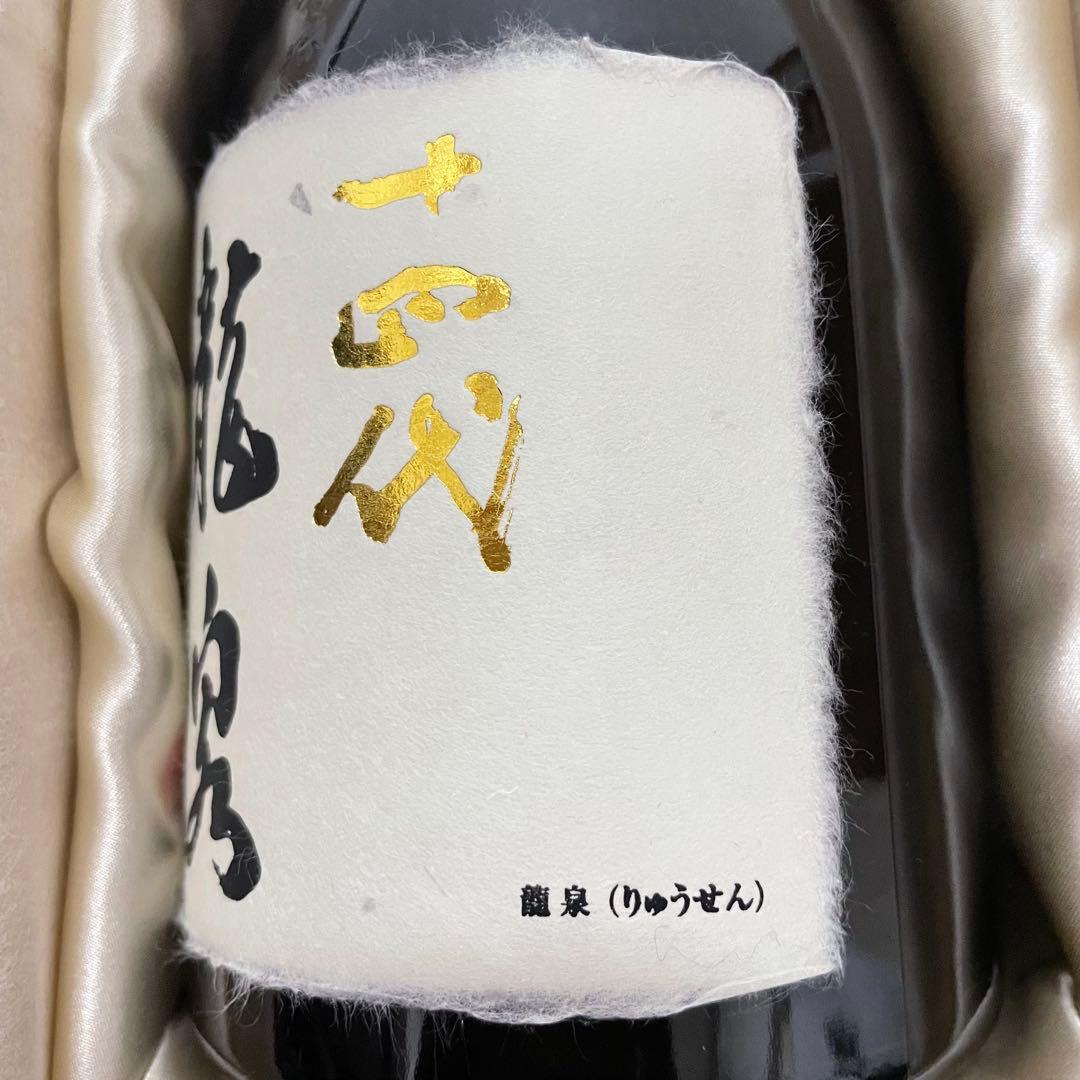 十四代
龍泉
龍泉（りゅうせん）